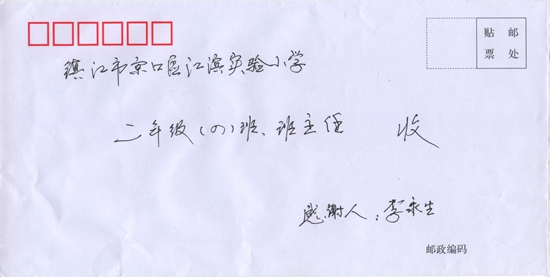 贴 邮
票 处
镇江市京口区江滨实验小学
二年级(四)班、班主任 收
感谢人:李永生
邮政编码